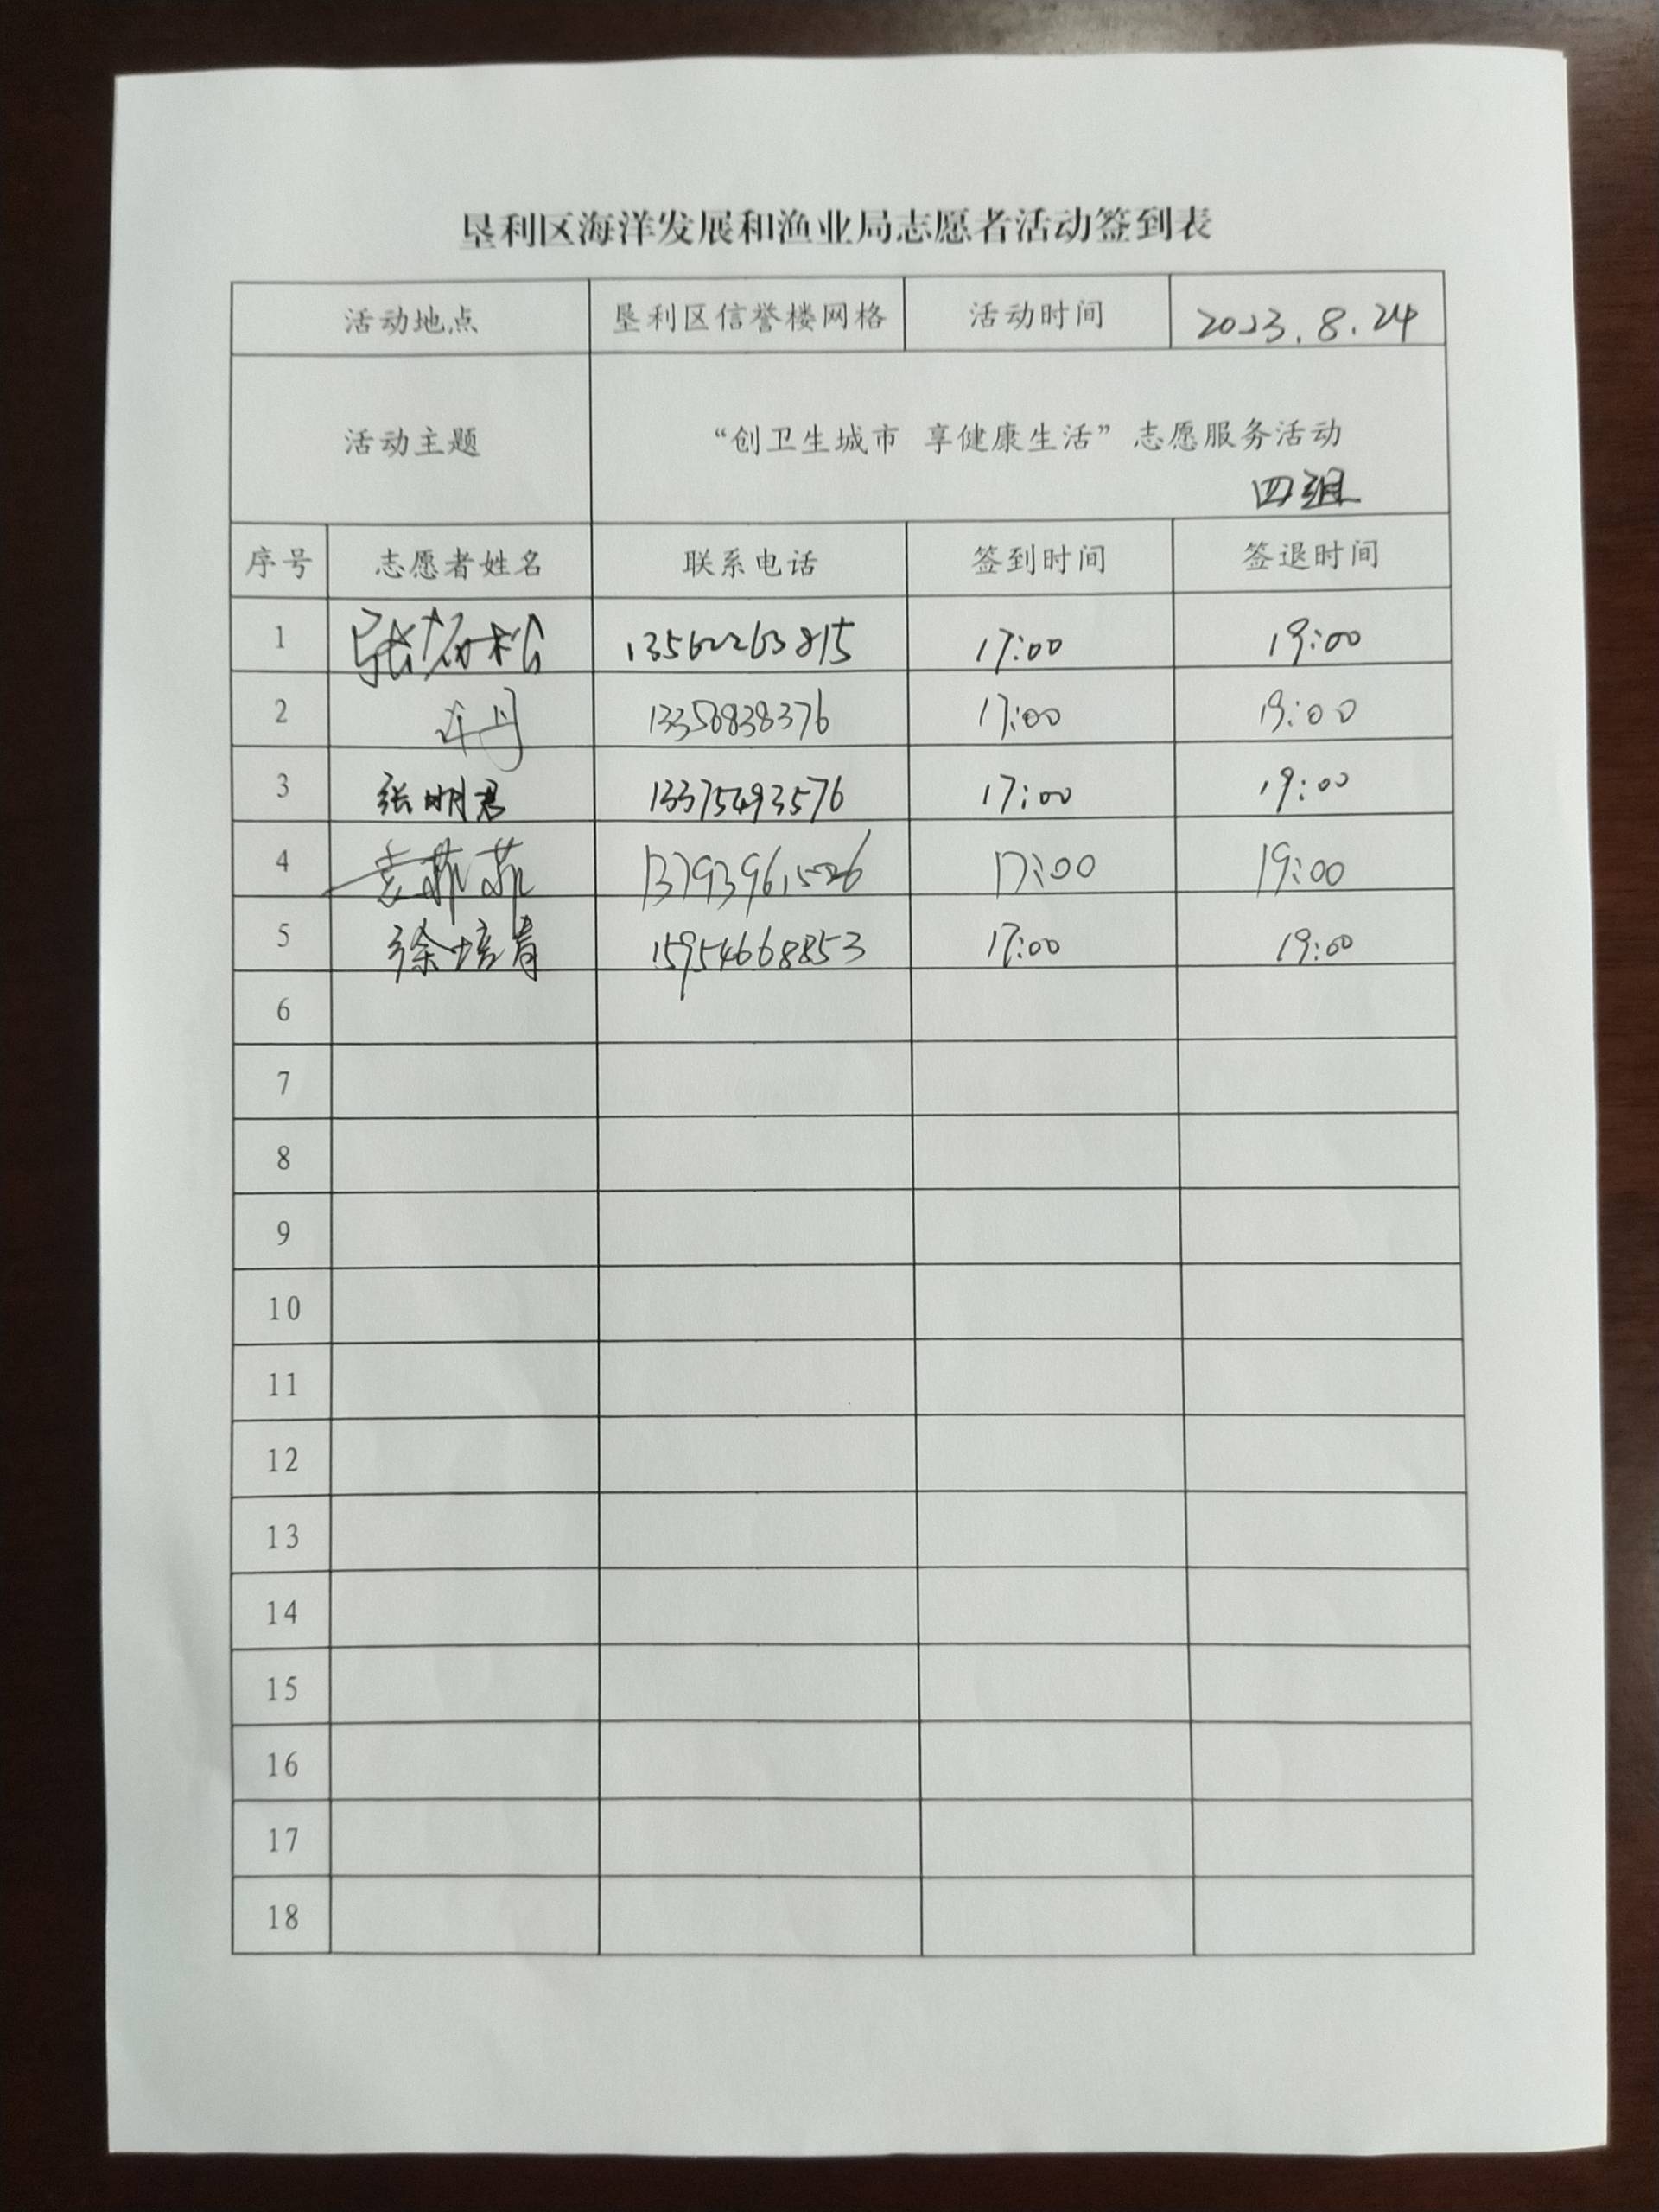 垦利区海洋发展和渔业局志愿者活动签到表
活动地点 垦利区信誉楼网格 活动时间 2023.8.24
活动主题 “创卫生城市 享健康生活”志愿服务活动
四组
序号 志愿者姓名 联系电话 签到时间 签退时间
1 13562263815 17:00 19:00
2 17:00 19:00
3 张明君 13375493576 17:00 19:00
4 袁菲菲 17:00 19:00
5 徐培青 15954668853 17:00 19:00
6
7
8
9
10
11
12
13
14
15
16
17
18